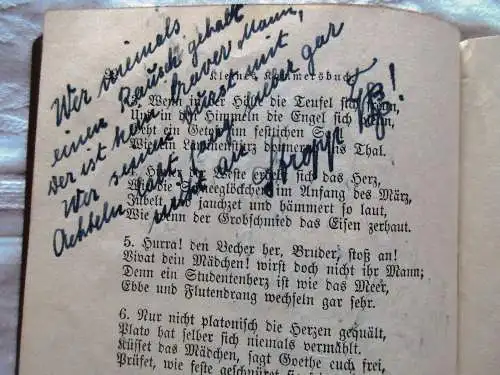 Wer niemals
einen Rausch gehabt
der ist kein braver Mann,
Wer seinen Durst mit
Achteln labt, fang lieber gar
nicht an
Kleines Kommersbuch
3. Wenn in der Hölle die Teufel sich
Und in den Himmeln die Engel sich
Geht ein im festlichen
Wie ein donnernd ins Thal.
4. Hinter der Weste sich das Herz,
Wie die Schneeglöckchen im Anfang des März,
Jubelt und jauchzet und hämmert so laut,
Wie wenn der Grobschmied das Eisen zerhaut.
5. Hurra! den Becher her, Bruder, stoß an!
Vivat dein Mädchen! wirst doch nicht ihr Mann;
Denn ein Studentenherz ist wie das Meer,
Ebbe und Flutendrang wechseln gar sehr.
6. Nur nicht platonisch die Herzen gequält,
Plato hat selber sich niemals vermählt.
Küsset das Mädchen, sagt Goethe euch frei,
Prüfet, wie feste geschnürt